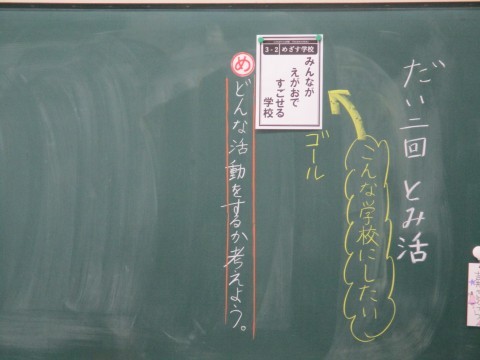 だい二回 とみ活
こんな学校にしたい
ゴール
3-2 めざす学校
みんなが
えがおで
すごせる
学校
め
どんな活動をするか考えよう。